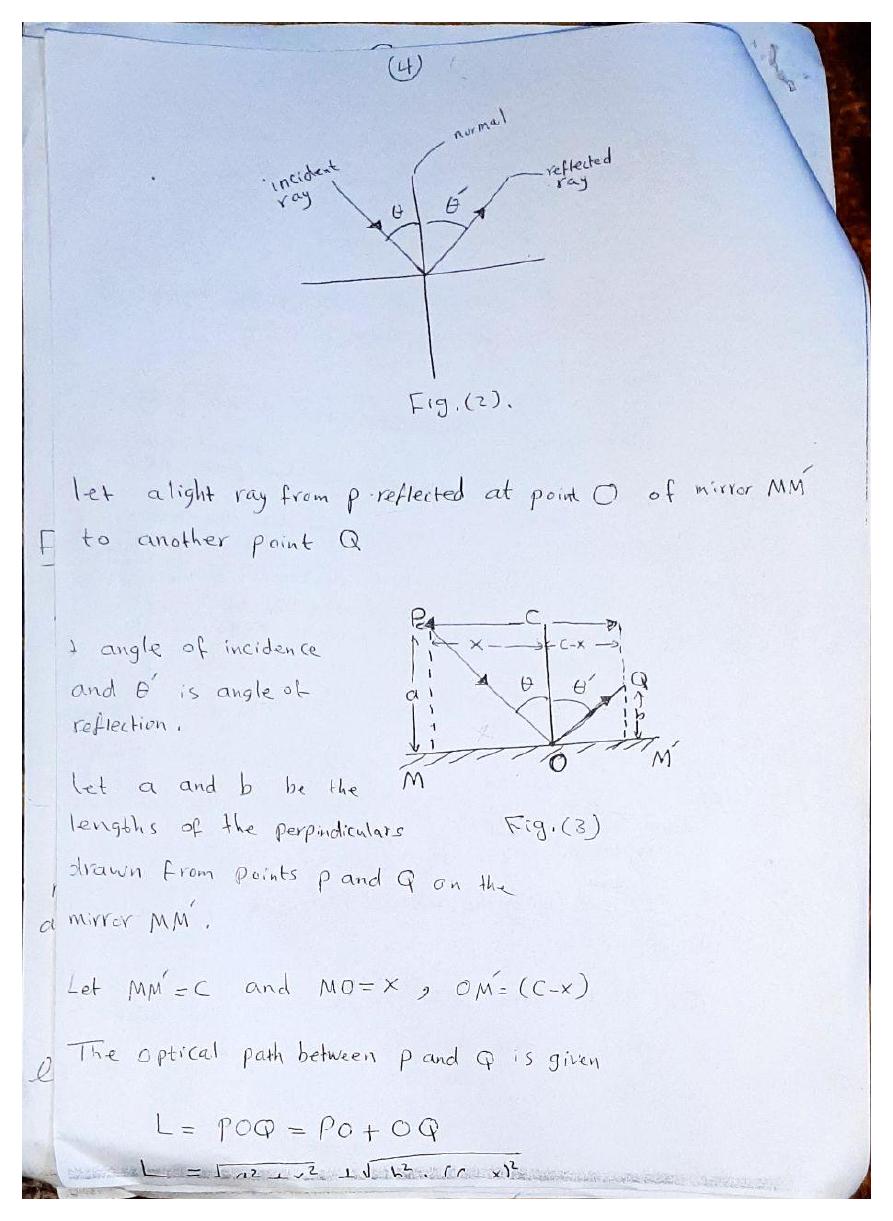 (4)
normal
incident
ray
reflected
ray
θ
θ′
Fig.(2).
let a light ray from p reflected at point O of mirror MM′
to another point Q
P
C
x
C-x
angle of incidence
θ
θ′
Q
and θ′ is angle of
a
b
reflection.
O
M′
let a and b be the
M
lengths of the perpindiculars
Fig.(3)
drawn from points p and Q on the
mirror MM′.
Let MM′ = C and MO = x , OM′ = (C-x)
The optical path between p and Q is given
L = POQ = PO + OQ
L = √a² + x² + √b² + (C-x)²